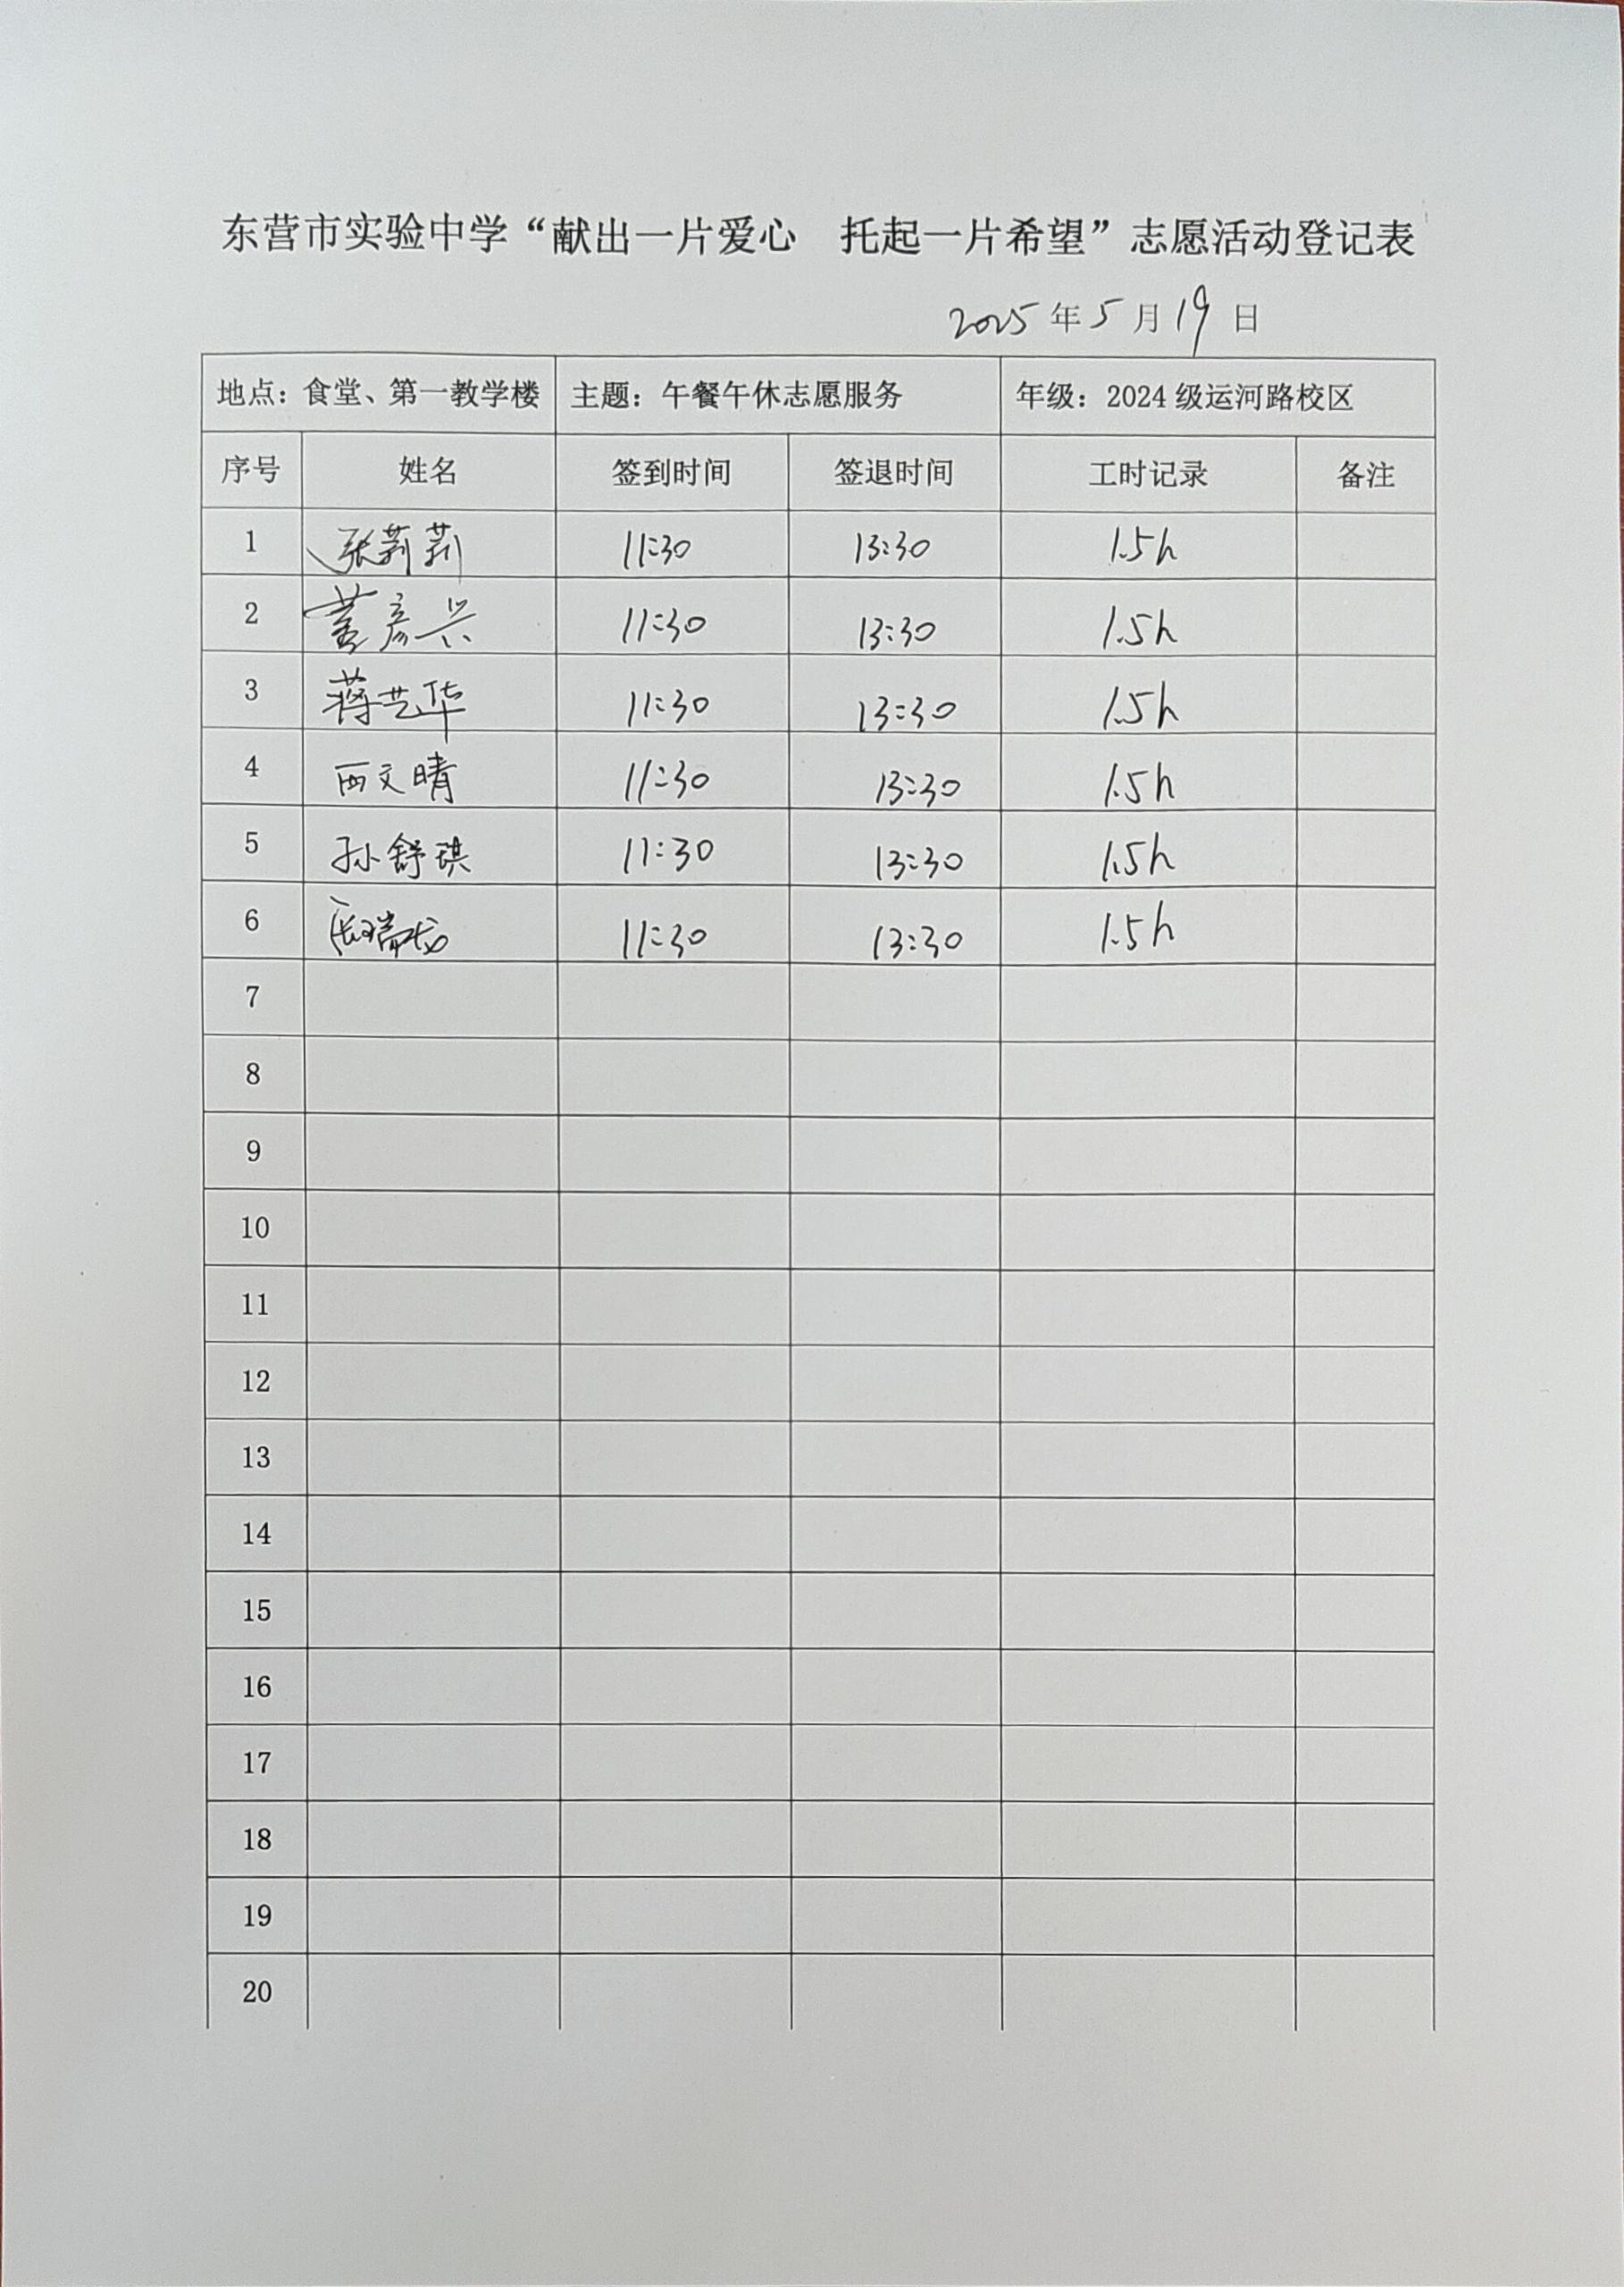 东营市实验中学“献出一片爱心　托起一片希望”志愿活动登记表
2025年5月19日
地点：食堂、第一教学楼 主题：午餐午休志愿服务 年级：2024级运河路校区
序号 姓名 签到时间 签退时间 工时记录 备注
1 张莉莉 11:30 13:30 1.5h
2 董彦兴 11:30 13:30 1.5h
3 蒋艺华 11:30 13:30 1.5h
4 西文晴 11:30 13:30 1.5h
5 孙舒琪 11:30 13:30 1.5h
6 瑞 11:30 13:30 1.5h
7
8
9
10
11
12
13
14
15
16
17
18
19
20